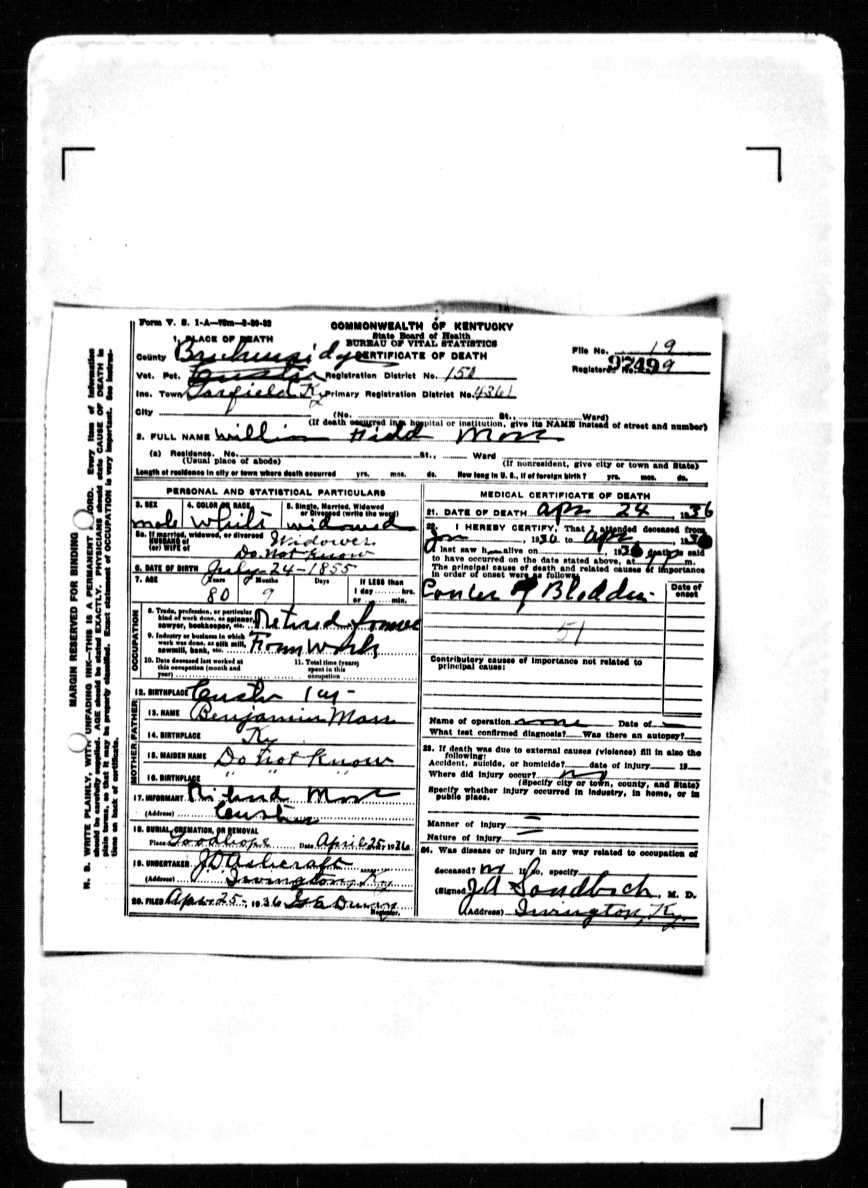 Form V. S. 1-A
COMMONWEALTH OF KENTUCKY
State Board of Health
BUREAU OF VITAL STATISTICS
CERTIFICATE OF DEATH
File No. 19
Registered No. 9
1. PLACE OF DEATH
County
Vot. Pct. Custer Registration District No. 150
Inc. Town Garfield Ky Primary Registration District No. 4361
City (No. St., Ward)
(If death occurred in a hospital or institution, give its NAME instead of street and number)
2. FULL NAME William Moss
(a) Residence. No. St., Ward
(Usual place of abode) (If nonresident, give city or town and State)
Length of residence in city or town where death occurred yrs. mos. ds. How long in U. S., if of foreign birth? yrs. mos. ds.
PERSONAL AND STATISTICAL PARTICULARS
3. SEX 4. COLOR OR RACE 5. Single, Married, Widowed or Divorced (write the word)
male White widowed
5a. If married, widowed, or divorced
HUSBAND of
(or) WIFE of
Widower
Do not Know
6. DATE OF BIRTH July-24-1855
7. AGE Years Months Days If LESS than
1 day hrs.
or min.
80 9
OCCUPATION
8. Trade, profession, or particular
kind of work done, as spinner,
sawyer, bookkeeper, etc. Retired farmer
9. Industry or business in which
work was done, as silk mill,
sawmill, bank, etc. Farm Work
10. Date deceased last worked at
this occupation (month and
year)
11. Total time (years)
spent in this
occupation
12. BIRTHPLACE Custer Ky-
FATHER
13. NAME Benjamin Moss
14. BIRTHPLACE Ky
MOTHER
15. MAIDEN NAME Do not Know
16. BIRTHPLACE " " "
17. INFORMANT Richard Moss
(Address) Custer
18. BURIAL, CREMATION, OR REMOVAL
Place Goodhope Date April 25, 1936
19. UNDERTAKER J.D. Ashcraft
(Address) Irvington, Ky
20. FILED Apr 25- 1936
Registrar.
MEDICAL CERTIFICATE OF DEATH
21. DATE OF DEATH Apr 24, 1936
22. I HEREBY CERTIFY, That I attended deceased from
Jan, 1936 to Apr, 1936
I last saw h alive on 1936 death is said
to have occurred on the date stated above, at m.
The principal cause of death and related causes of importance
in order of onset were as follows:
Date of
onset
Cancer of Bladder
51
Contributory causes of importance not related to
principal cause:
Name of operation none Date of
What test confirmed diagnosis? Was there an autopsy?
23. If death was due to external causes (violence) fill in also the
following:
Accident, suicide, or homicide? date of injury 19
Where did injury occur? no
(Specify city or town, county, and State)
Specify whether injury occurred in industry, in home, or in
public place.
Manner of injury
Nature of injury
24. Was disease or injury in any way related to occupation of
deceased? no If so, specify
(Signed) J.A. Sandbach, M. D.
(Address) Irvington, Ky.
MARGIN RESERVED FOR BINDING
N. B. WRITE PLAINLY, WITH UNFADING INK—THIS IS A PERMANENT RECORD. Every item of information
should be carefully supplied. AGE should be stated EXACTLY. PHYSICIANS should state CAUSE OF DEATH in
plain terms, so that it may be properly classified. Exact statement of OCCUPATION is very important. See instruc-
tions on back of certificate.